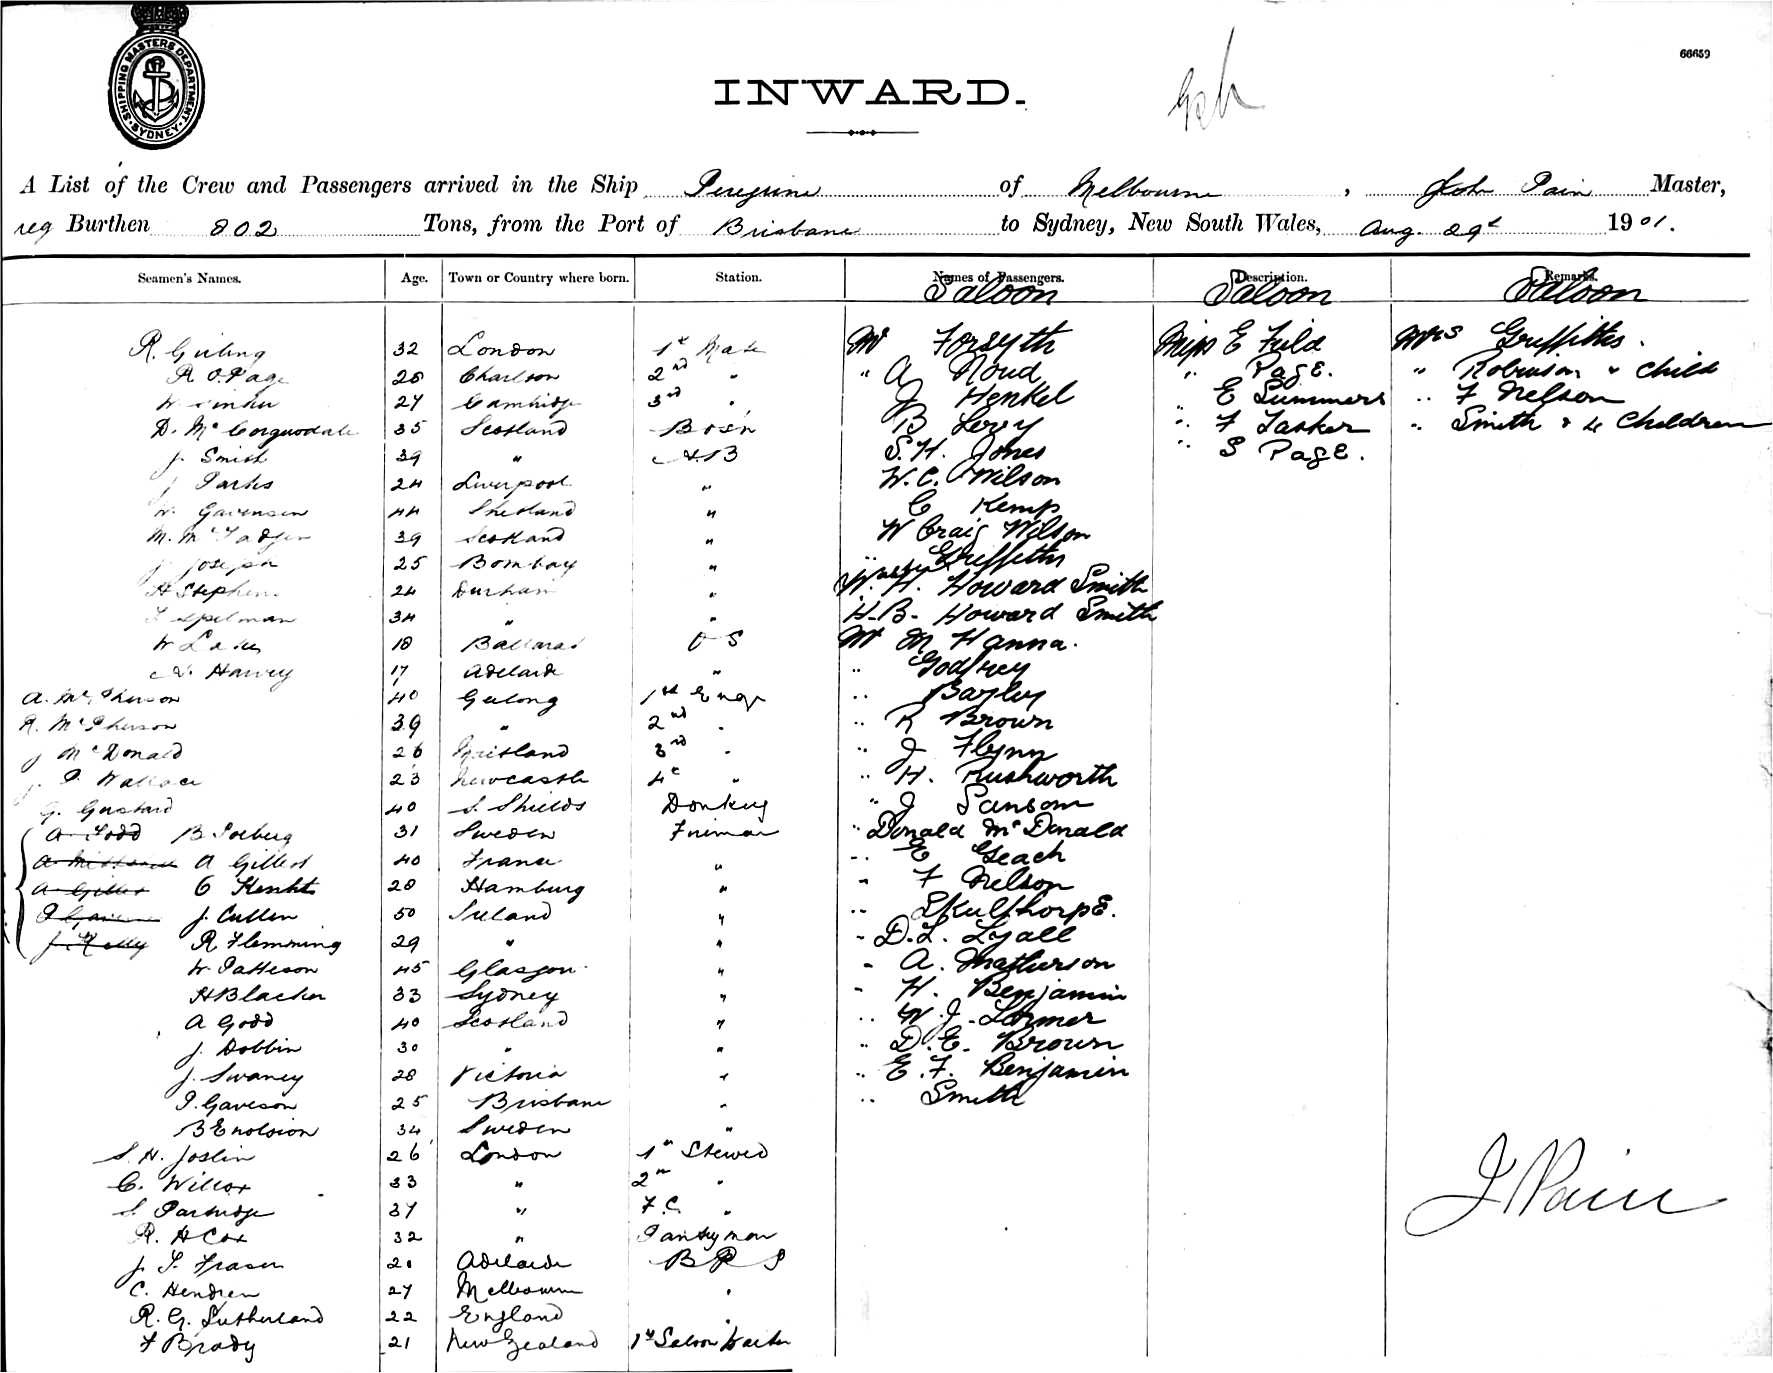 SHIPPING MASTERS DEPARTMENT
SYDNEY
66659
INWARD.
A List of the Crew and Passengers arrived in the Ship Peregrine of Melbourne, John Pain Master,
reg Burthen 802 Tons, from the Port of Brisbane to Sydney, New South Wales, Aug. 29th 1901.
Seamen's Names. Age. Town or Country where born. Station. Names of Passengers. Description. Remarks.
Saloon Saloon Saloon
R. Girling 32 London 1st Mate Mr Forsyth Miss E Field Mrs Griffiths.
R O. Page 28 Charlson 2nd " " A Roud " Page. " Robinson & child
27 Cambridge 3rd " J Henkel " E Summers " F Nelson
D. McCorquodale 35 Scotland Bosn B Levy " F Tasker " Smith & 4 Children
J. Smith 39 " A.B S. H. Jones " S Page.
J Parks 24 Liverpool " W. C. Wilson
W. Gavensen 44 Shetland " C Kemp
M. McFadyen 39 Scotland " W Craig Wilson
J. Joseph 25 Bombay " " Griffiths
H Stephens 24 Durham " W. H. Howard Smith
T Spelman 34 " " H. B. Howard Smith
W Lake 18 Ballarat O S Mr M Hanna.
A. Harvey 17 Adelaide " " Godfrey
A. McPherson 40 Geelong 1st Engr " Bayley
R. McPherson 39 " 2nd " " R Brown
J McDonald 26 Maitland 3rd " " J Flynn
J. P. Wallace 23 Newcastle 4th " " H. Rushworth
G. Gustard 40 S. Shields Donkey " J Sansom
A. Todd B Soeberg 31 Sweden Fireman " Donald McDonald
A Gillert 40 France " " E Geach
A Gillert C Kenht 28 Hamburg " " F Nelson
J. Cullen 50 Ireland " " Skulthorpe.
J. Kelly R Flemming 29 " " " D. L. Lyall
W. Patteson 45 Glasgow " " A. Matherson
H Blacker 33 Sydney " " H. Benjamin
A Godd 40 Scotland " " W. J. Lormer
J. Dobbin 30 " " " D. E. Brown
J. Swaney 28 Victoria " " E. F. Benjamin
P. Gaveson 25 Brisbane " " Smith
B 34 Sweden "
S. H. Joslin 26 London 1st Stewed
C. Willox 33 " 2nd "
S. Partridge 37 " F. C. "
R. H Cox 32 " Pantryman
J. S. Fraser 20 Adelaide B R S
C. Hendren 27 Melbourne "
R. G. Sutherland 22 England "
F Brady 21 New Zealand 1st Saloon Waiter
J Pain